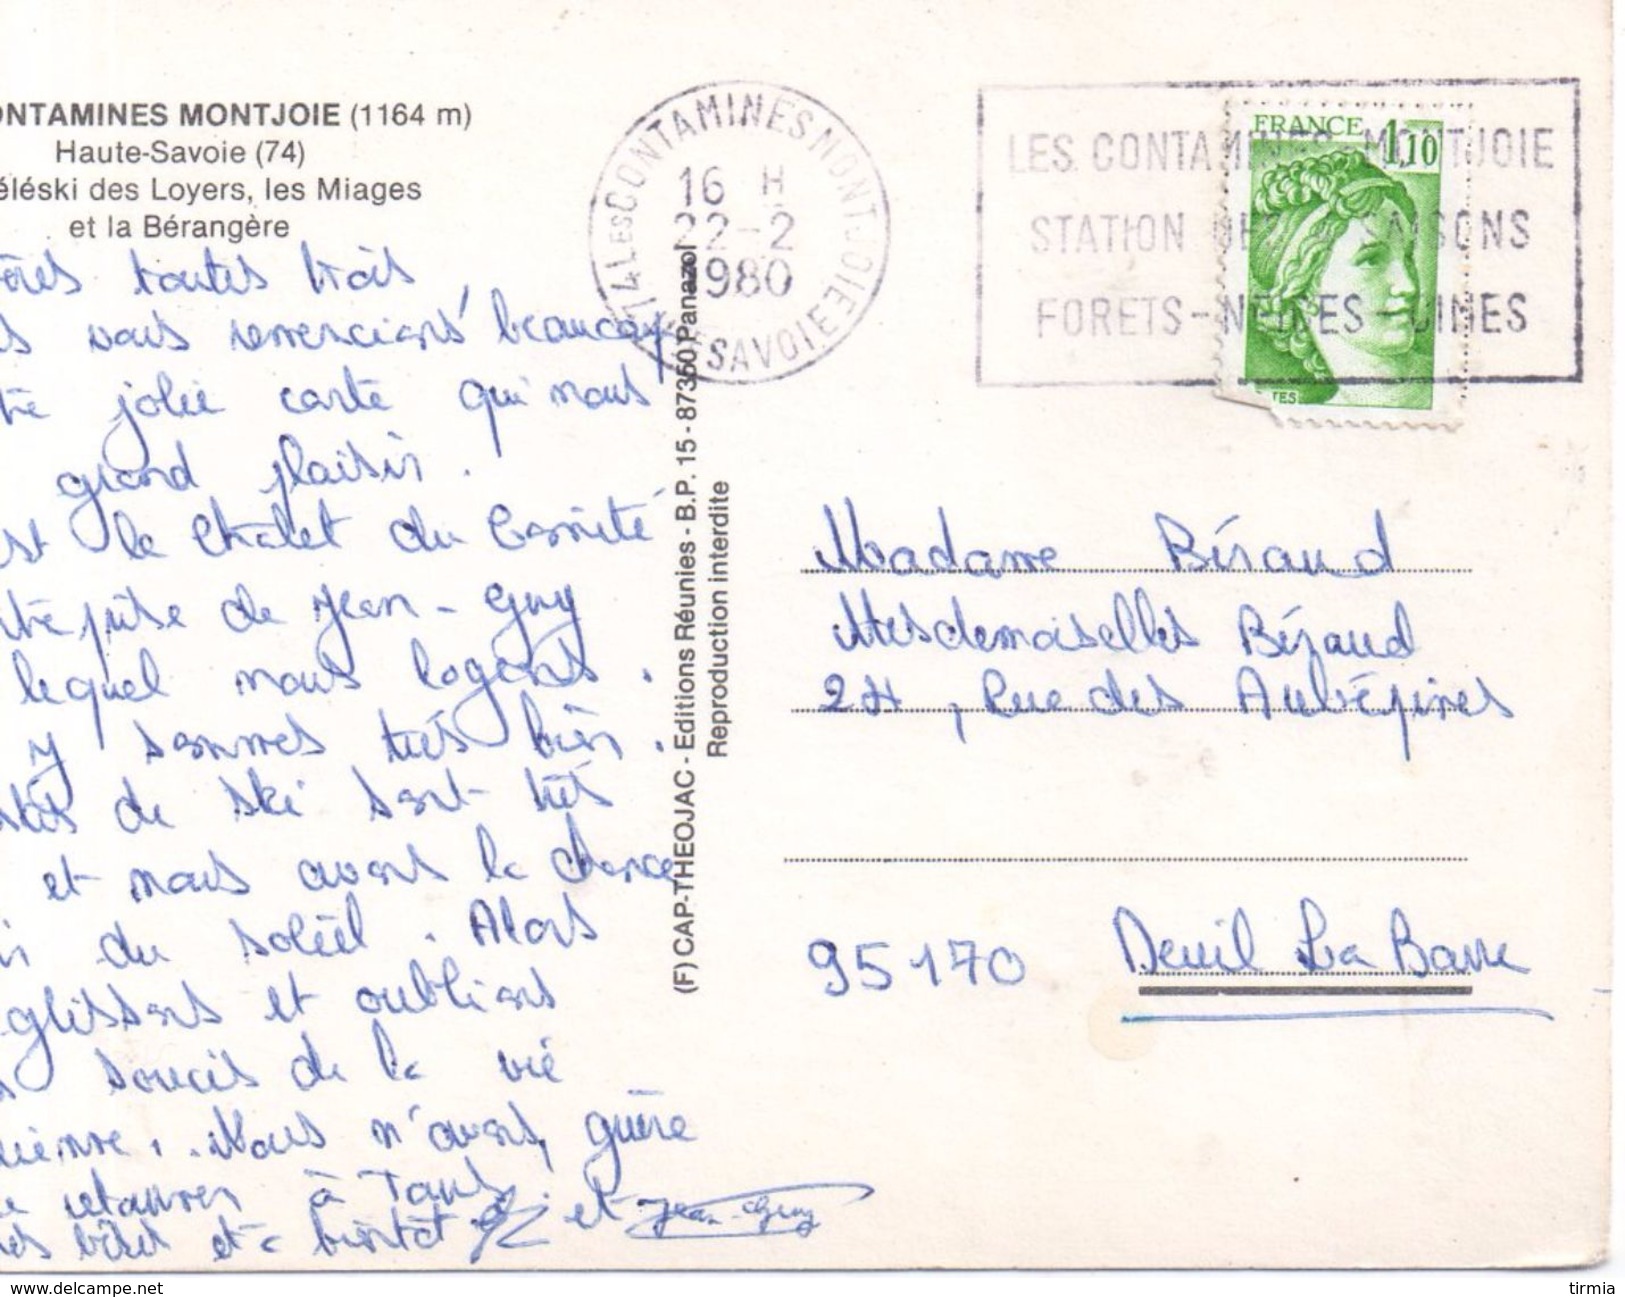 ONTAMINES MONTJOIE (1164 m)
Haute-Savoie (74)
éléski des Loyers, les Miages
et la Bérangère
toutes trois,
vous remercions beaucoup
jolie carte qui nous
grand plaisir.
st le Chalet du Comité
prise de Jean-Guy
lequel nous logeons.
y sommes très bien.
de ski sont très
et nous avons la chance
du soleil. Alors
glissons et oublions
soucis de la vie
ienne. Nous n'avons guère
retourner à
bises et à bientôt
et Jean-Guy
(F) CAP-THEOJAC - Editions Réunies - B.P. 15 - 87350 Panazol
Reproduction interdite
74 LES CONTAMINES MONTJOIE
16 H
22-2
1980
HTE SAVOIE
LES CONTAMINES MONTJOIE
STATION DES SAISONS
FORETS - NEIGES - CIMES
FRANCE 1,10
Madame Béraud
Mesdemoiselles Béraud
, Rue des Aubépines
95170 Deuil La Barre
tirmia